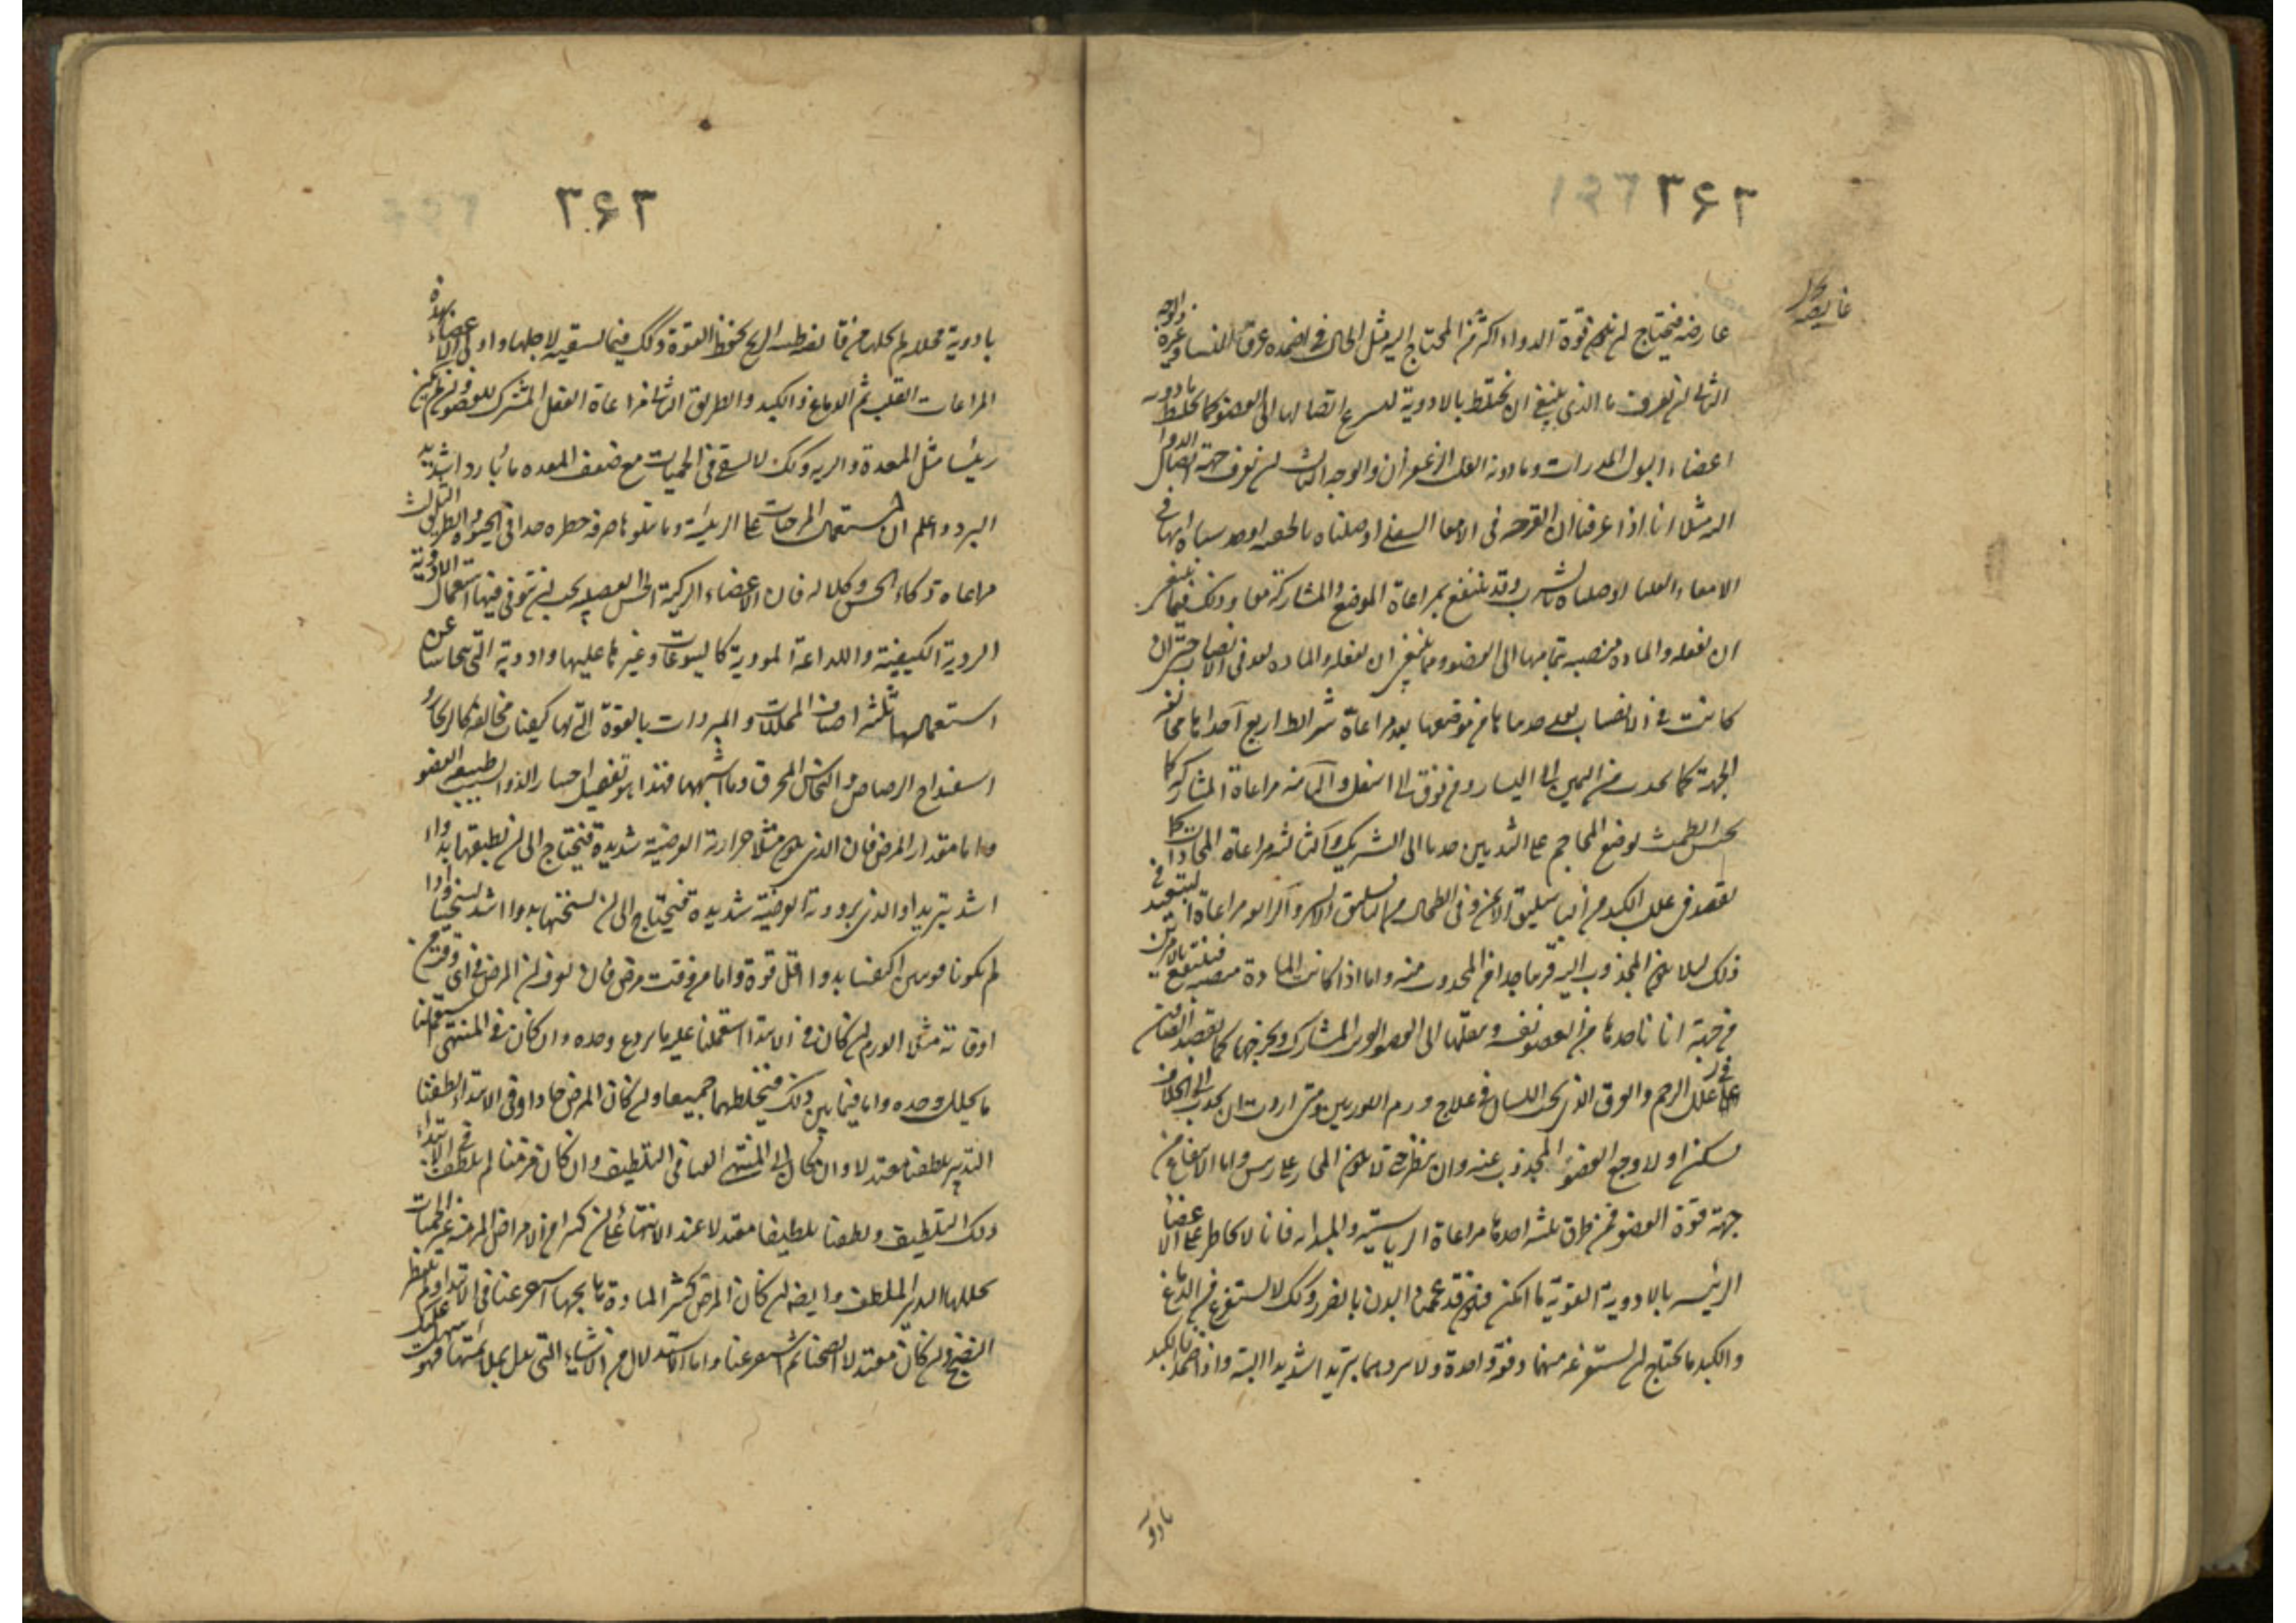 ۳۶۲
عارضه فيحتاج ان يكون قوة الدواء اكثر من المحتاج اليه مثل الحال في اضمده عرق النسا وغيره والوجه
الثانى ان تعرف ما الذى ينبغى ان يختلط بالادوية ليسرع اتصالها الى العضو كما يخلط بادويه
اعضاء البول المدرات وبادوية القلب الزعفران والوجه الثالث ان نعرف جهة اتصال الدوا
اليه مثلا انا اذا عرفنا ان القرحه فى الامعا السفلى اوصلناه بالحقنه او حدسنا انها فى
الامعاء العليا اوصلناه بالشرب وقد ينتفع بمراعاة الموضع والمشاركة معا وذلك فيما ينبغى
ان نفعله والماده منصبه بتمامها الى العضو ومما ينبغى ان نفعله والماده بعد فى الانصباب حتى ان
كانت فى الانصباب بعد جذبناها من موضعها بعد مراعاة شرائط اربع احداها مخالفه
الجهة كما يجذب من اليمين الى اليسار ومن فوق الى اسفل والثانيه مراعاة المشاركه كما
يحبس الطمث بوضع المحاجم على الثديين جذبا الى الشريك والثالثه مراعاة المحاذات كما
يفصد فى علل الكبد من الباسليق الايمن وفى الطحال من الباسليق الايسر والرابعه مراعاة التبعيد فى
ذلك لئلا يكون المجذوب اليه قريبا جدا من المجذوب منه واما اذا كانت المادة منصبه فينتفع بالامرين
من جهة انا ناخذها من العضو نفسه وننقلها الى العضو القريب المشارك ونخرجها كما نفصد الصافن
فى علل الرحم والعرق الذى تحت اللسان فى علاج ورم اللوزتين ومتى اردت ان تجذب الى الخلاف
فسكن اولا وجع العضو المجذوب عنه وان ينظر حتى لا يكون المجاز على رئيس واما الانتفاع من
جهة قوة العضو فمن طرق ثلثه احدها مراعاة الرياسية والمبدائيه فانا لا نخاطر على الاعضا
الرئيسه بالادوية القوية ما امكن فنكون قد عممنا البدن بالضرر وكذلك لا نستفرغ من الدماغ
والكبد ما يحتاج ان نستفرغه منهما دفعة واحدة ولا نبردهما تبريدا شديدا البتة واذا ضمدنا الكبد
بادو
۳۶۳
بادوية محللة لم نخلها من قابضه طيبه الريح لحفظ القوة وكذلك فيما نسقيه لاجلها واولى الاعضاء بهذه
المراعات القلب ثم الدماغ ثم الكبد والطريق الثانى مراعاة الفعل المشترك للعضو وان لم يكن
رئيسا مثل المعدة والريه وكذلك لا نسقى فى الحميات مع ضعف المعده ماء باردا شديد
البرد واعلم ان استعمال المرخيات على الرئيسة وما يتلوها صرفه خطره جدا فى الحيوه والطريق الثالث
مراعاه ذكاء الحس وكلاله فان الاعضاء الذكية الحس العصبيه يجب ان يتوقى فيها استعمال الادوية
الردية الكيفية واللذاعة الموذية كاليتوعات وغيرها عليها وادوية التى يتحاشا عن
استعمالها ثلثه اصناف المحللات والمبردات بالقوة التى لها كيفيات مخالفه كالزنجار و
اسفيداج الرصاص والنحاس المحرق وما اشبهها فهذا هو تفصيل اختيار الدوا بسبب طبيعه العضو
واما مقدار المرض فان الذى يكون مثلا حرارته العرضيه شديدة فيحتاج الى ان نطفيها بدواء
اشد تبريدا والذى برودته العرضيه شديده فيحتاج الى ان نسخنها بدوا اشد تسخينا واذا
لم يكونا قويين اكتفينا بدوا اقل قوة واما من وقت مرض فان نعرف ان المرض فى اى وقت من
اوقاته مثلا الورم ان كان فى الابتدا استعملنا عليه ما يردع وحده وان كان فى المنتهى استعملنا
ما يحلل وحده واما فيما بين ذلك فنخلطهما جميعا وان كان المرض حادا وفى الابتداء لطفنا
التدبير تلطيفا معتدلا وان كان الى المنتهى بالغنا فى التلطيف وان كان مزمنا لم نلطف فى الابتداء
ذلك التلطيف ولطفنا تلطيفا معتدلا عند الانتهاء على ان كثيرا من الامراض المزمنه غير الحميات
يحللها التدبير الملطف وايضا ان كان المرض كثير المادة هايجها استفرغنا فى الابتداء ولم ننتظر
النضج وان كان معتدلا انضجنا ثم استفرغنا واما الاستدلال من الاشياء التى تدل بملامتها فهو